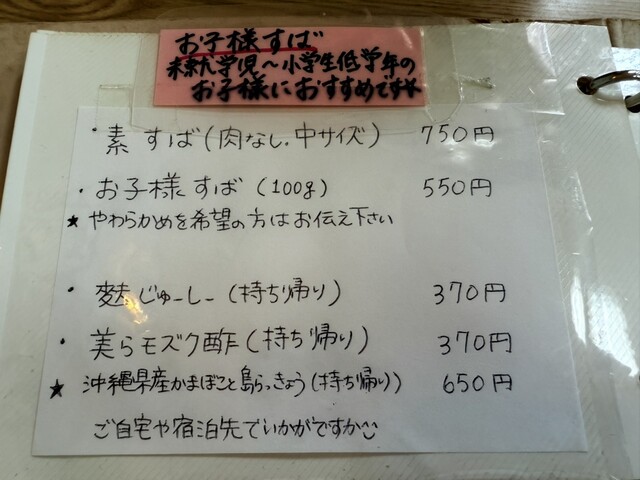 お子様すば
未就学児~小学生低学年の
お子様におすすめです
・素すば(肉なし.中サイズ) 750円
・お子様すば(100g) 550円
★やわらかめを希望の方はお伝え下さい
・麩じゅーしー(持ち帰り) 370円
・美らモズク酢(持ち帰り) 370円
★沖縄県産かまぼこと島らっきょう(持ち帰り)) 650円
ご自宅や宿泊先でいかがですか